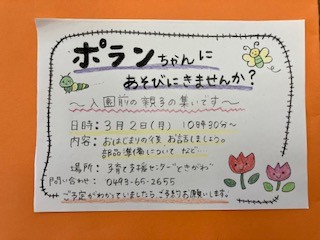 ポランちゃんに
あそびにきませんか?
〜入園前の親子の集いです〜
日時:3月2日(月) 10時30分〜
内容:おはじまりの後、お話しましょう。
部品準備について など…
場所:子育て支援センター"ときがわ"
問い合わせ:0493-65-2655
ご予定がわかっていましたら、ご予約お願いします。